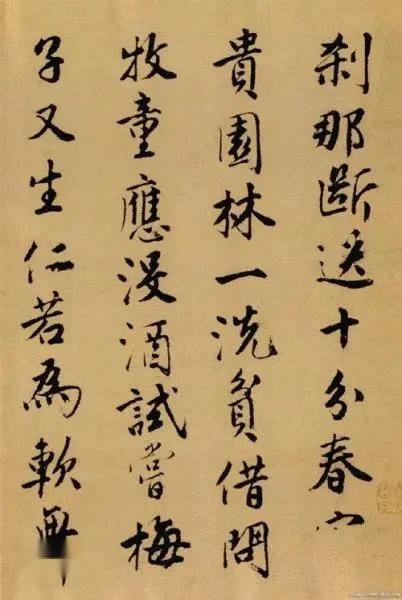 刹那斷送十分春
貴園林一洗貧借問
牧童應没酒試嘗梅
子又生仁若為軟